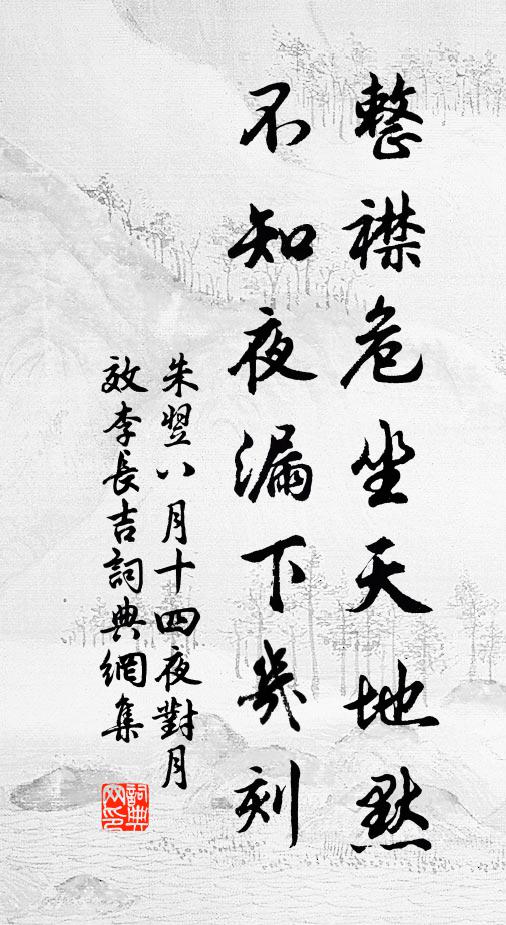 整襟危坐天地默
不知夜漏下幾刻
朱翌八月十四夜對月
效李長吉詞典網集
詞典
网印